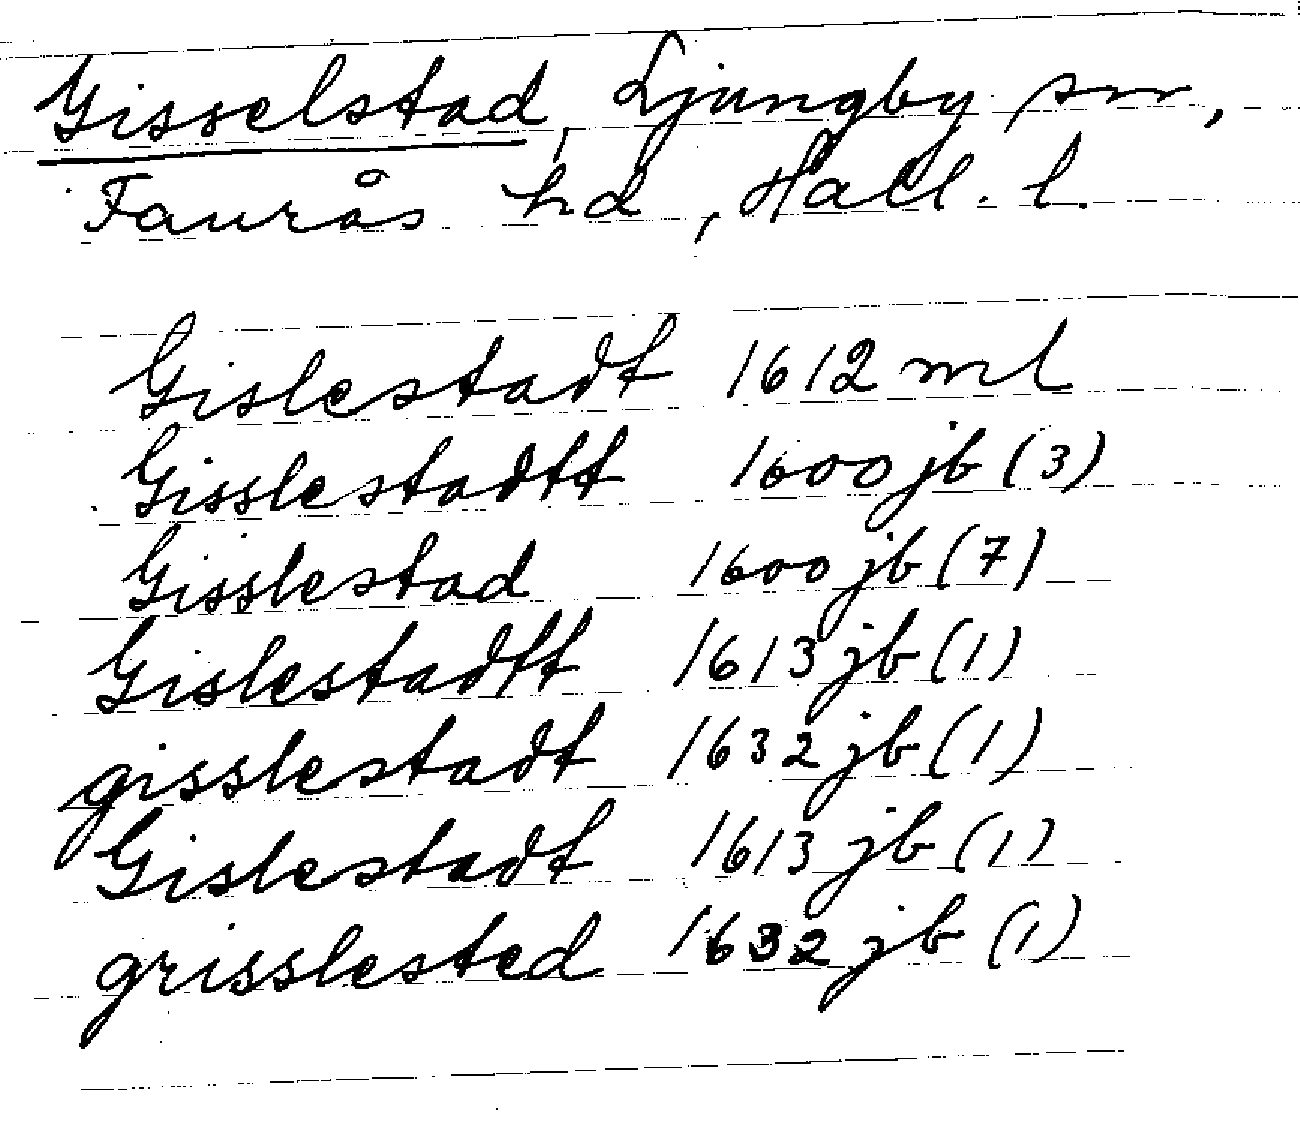 Gisselstad, Ljungby sn,
Faurås hd, Hall. l.
Gislestadt 1612 ml
Gisslestadtt 1600 jb (3)
Gisslestad 1600 jb (7)
Gislestadtt 1613 jb (1)
gisslestadt 1632 jb (1)
Gislestadt 1613 jb (1)
grisslested 1632 jb (1)